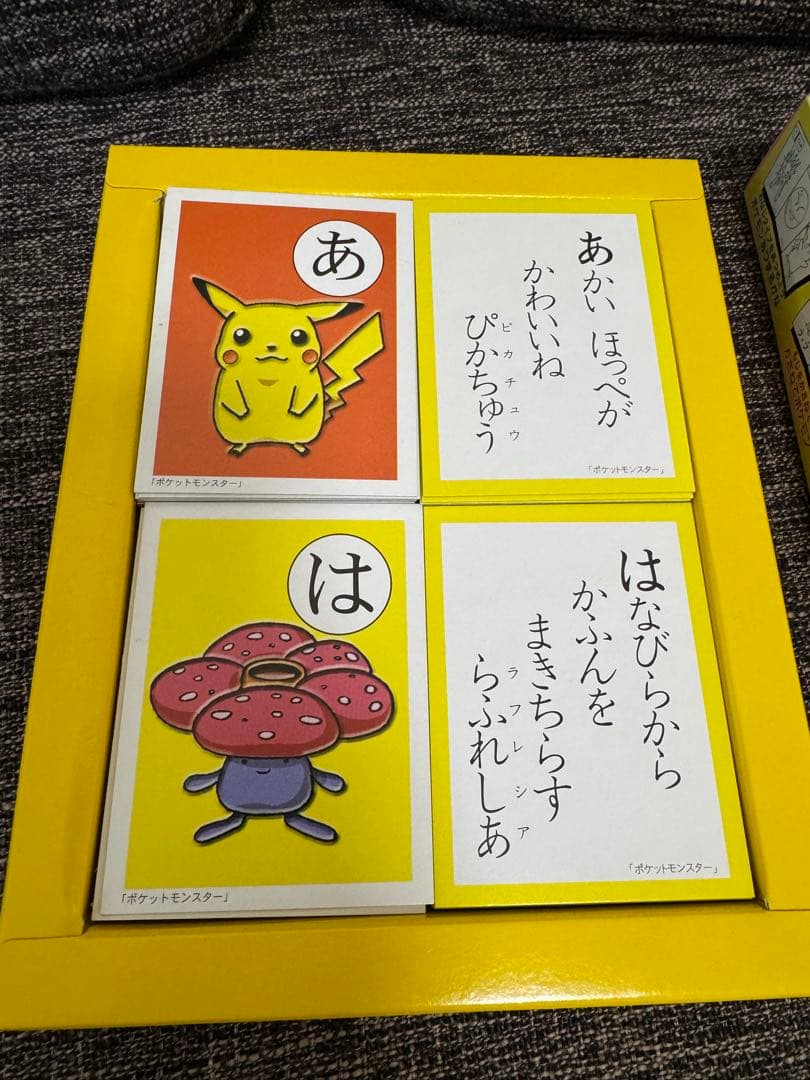 あ
「ポケットモンスター」
あかい ほっぺが
かわいいね
ぴかちゅう
ピカチュウ
「ポケットモンスター」
は
「ポケットモンスター」
はなびらから
かふんを
まきちらす
らふれしあ
ラフレシア
「ポケットモンスター」